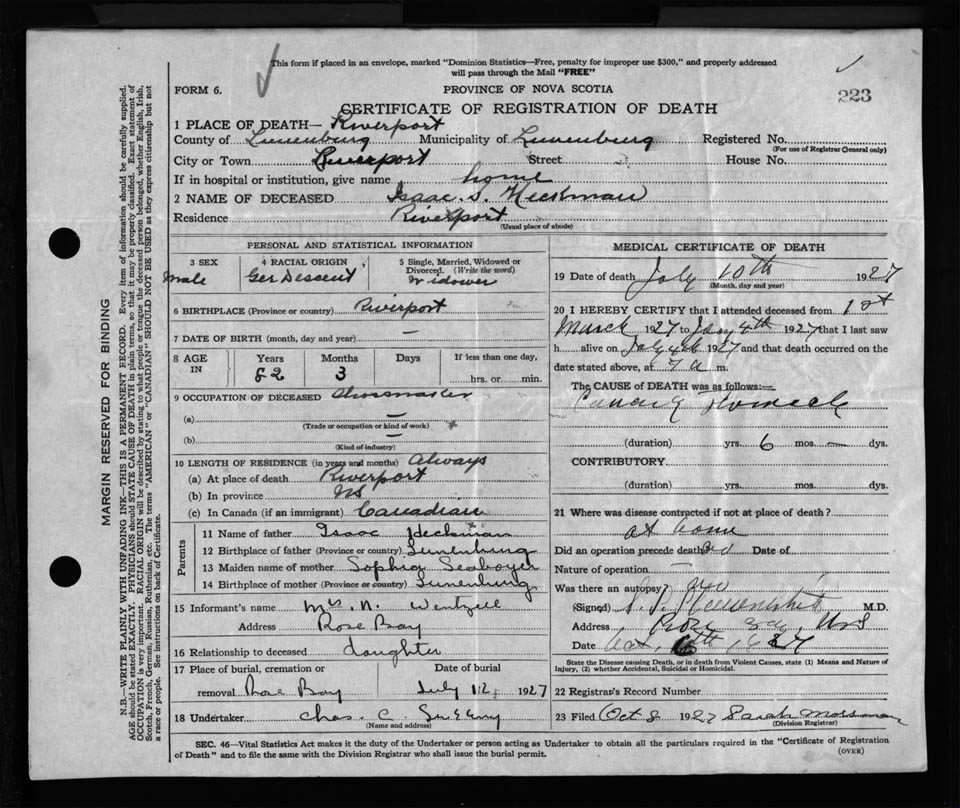 This form if placed in an envelope, marked "Dominion Statistics—Free, penalty for improper use $300," and properly addressed
will pass through the Mail "FREE"
FORM 6.
PROVINCE OF NOVA SCOTIA
223
CERTIFICATE OF REGISTRATION OF DEATH
1 PLACE OF DEATH— Riverport
County of Lunenburg Municipality of Lunenburg Registered No.
(For use of Registrar General only)
City or Town Riverport Street House No.
If in hospital or institution, give name home
2 NAME OF DECEASED Isaac. S. Heckman
Residence Riverport
(Usual place of abode)
PERSONAL AND STATISTICAL INFORMATION
3 SEX
Male
4 RACIAL ORIGIN
Ger Descent
5 Single, Married, Widowed or
Divorced. (Write the word)
Widower
6 BIRTHPLACE (Province or country) Riverport
7 DATE OF BIRTH (month, day and year) —
8 AGE
IN
Years Months Days If less than one day,
82 3 hrs. or min.
9 OCCUPATION OF DECEASED
(a) —
(Trade or occupation or kind of work)
(b) —
(Kind of industry)
10 LENGTH OF RESIDENCE (in years and months) Always
(a) At place of death Riverport
(b) In province NS
(c) In Canada (if an immigrant) Canadian
Parents
11 Name of father Isaac Heckman
12 Birthplace of father (Province or country) Lunenburg
13 Maiden name of mother Sophia Seaboyer
14 Birthplace of mother (Province or country) Lunenburg
15 Informant's name Mrs. N. Wentzell
Address Rose Bay
16 Relationship to deceased daughter
17 Place of burial, cremation or Date of burial
removal Rose Bay July 12, 1927
18 Undertaker Chas. C.
(Name and address)
MEDICAL CERTIFICATE OF DEATH
19 Date of death July 10th 1927
(Month, day and year)
20 I HEREBY CERTIFY that I attended deceased from 1st
March 1927 to 4th 1927 that I last saw
h alive on July 4th 1927 and that death occurred on the
date stated above, at 7 a m.
The CAUSE of DEATH was as follows:—
Cancer of Stomach
(duration) yrs. 6 mos. — dys.
CONTRIBUTORY
(duration) yrs. mos. dys.
21 Where was disease contracted if not at place of death?
at home
Did an operation precede death? no Date of
Nature of operation —
Was there an autopsy? no
(Signed) M.D.
Address Rose Bay, NS
Date Oct. 6th, 1927
State the Disease causing Death, or in death from Violent Causes, state (1) Means and Nature of
Injury, (2) whether Accidental, Suicidal or Homicidal.
22 Registrar's Record Number
23 Filed Oct 8 1927 Sarah Mossman
(Division Registrar)
SEC. 46—Vital Statistics Act makes it the duty of the Undertaker or person acting as Undertaker to obtain all the particulars required in the "Certificate of Registration
of Death" and to file the same with the Division Registrar who shall issue the burial permit.
(OVER)
MARGIN RESERVED FOR BINDING
N.B.—WRITE PLAINLY WITH UNFADING INK—THIS IS A PERMANENT RECORD. Every item of information should be carefully supplied.
AGE should be stated EXACTLY. PHYSICIANS should STATE CAUSE OF DEATH in plain terms, so that it may be properly classified. Exact statement of
OCCUPATION is very important. RACIAL ORIGIN will be described by stating to what people or tongue the deceased person belonged, whether English, Irish,
Scotch, French, German, Russian, Ruthenian, etc. The terms "AMERICAN" or "CANADIAN" SHOULD NOT BE USED as they express citizenship but not
a race or people. See instructions on back of Certificate.